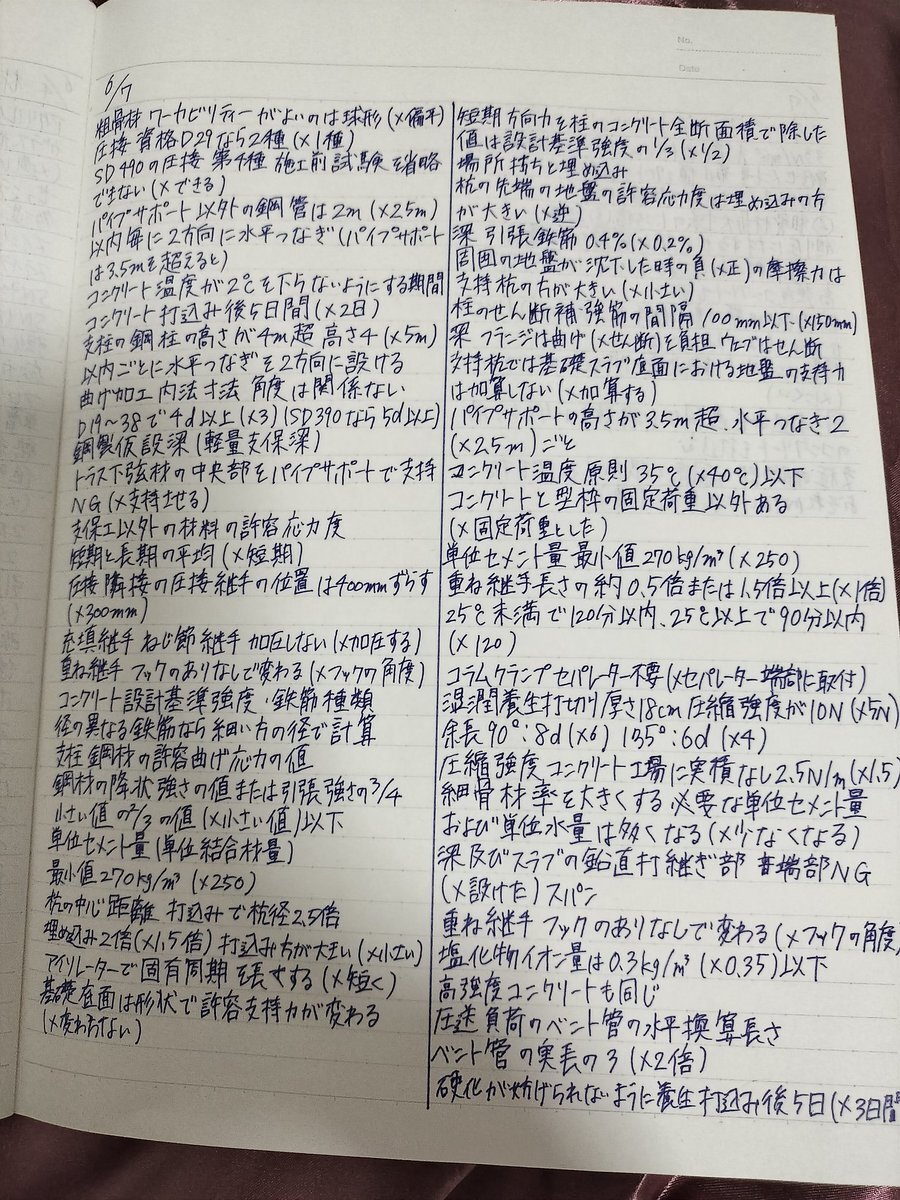 No.
Date
6/7
粗骨材 ワーカビリティーがよいのは球形(×偏平)
圧接 資格D29なら2種(×1種)
SD490の圧接 第4種 施工前試験を省略
できない(×できる)
パイプサポート以外の鋼管は2m(×2.5m)
以内毎に2方向に水平つなぎ(パイプサポート
は3.5mを超えると)
コンクリート温度が2℃を下らないようにする期間
コンクリート打込み後5日間(×2日)
支柱の鋼柱の高さが4m超 高さ4(×5m)
以内ごとに水平つなぎを2方向に設ける
曲げ加工 内法寸法 角度は関係ない
D19~38で4d以上(×3)(SD390なら5d以上)
鋼製仮設梁(軽量支保梁)
トラス下弦材の中央部をパイプサポートで支持
NG(×支持させる)
支保工以外の材料の許容応力度
短期と長期の平均(×短期)
圧接 隣接の圧接継手の位置は400mmずらす
(×300mm)
充填継手 ねじ節継手 加圧しない(×加圧する)
重ね継手 フックのありなしで変わる(×フックの角度)
コンクリート設計基準強度・鉄筋種類
径の異なる鉄筋なら細い方の径で計算
支柱 鋼材の許容曲げ応力の値
鋼材の降状強さの値または引張強さの3/4
小さい値の2/3の値(×小さい値)以下
単位セメント量(単位結合材量)
最小値270kg/m³(×250)
杭の中心距離 打込みで杭径2.5倍
埋め込み2倍(×1.5倍) 打込み方が大きい(×小さい)
アイソレーターで固有周期を長くする(×短く)
基礎底面は形状で許容支持力が変わる
(×変わらない)
短期 方向力を柱のコンクリート全断面積で除した
値は設計基準強度の1/3(×1/2)
場所打ちと埋め込み
杭の先端の地盤の許容応力度は埋め込みの方
が大きい(×逆)
梁 引張鉄筋 0.4%(×0.2%)
周囲の地盤が沈下した時の負(×正)の摩擦力は
支持杭の方が大きい(×小さい)
柱のせん断補強筋の間隔 100mm以下(×150mm)
梁 フランジは曲げ(×せん断)を負担 ウェブはせん断
支持杭では基礎スラブ底面における地盤の支持力
は加算しない(×加算する)
パイプサポートの高さが3.5m超、水平つなぎ2
(×2.5m)ごと
コンクリート温度 原則 35℃(×40℃)以下
コンクリートと型枠の固定荷重以外ある
(×固定荷重とした)
単位セメント量 最小値270kg/m³(×250)
重ね継手長さの約0.5倍または1.5倍以上(×1倍)
25℃未満で120分以内、25℃以上で90分以内
(×120)
コラムクランプ セパレーター不要(×セパレーター端部に取付)
湿潤養生打切り 厚さ18cm 圧縮強度が10N(×5N)
余長90°:8d(×6) 135°:6d(×4)
圧縮強度 コンクリート工場に実積なし2.5N/m(×1.5)
細骨材率を大きくする 必要な単位セメント量
および単位水量は多くなる(×少なくなる)
梁及びスラブの鉛直打継ぎ部 端部NG
(×設けた)スパン
重ね継手 フックのありなしで変わる(×フックの角度)
塩化物イオン量は0.3kg/m³(×0.35)以下
高強度コンクリートも同じ
圧送負荷のベント管の水平換算長さ
ベント管の実長の3(×2倍)
硬化が妨げられないように養生 打込み後5日(×3日間